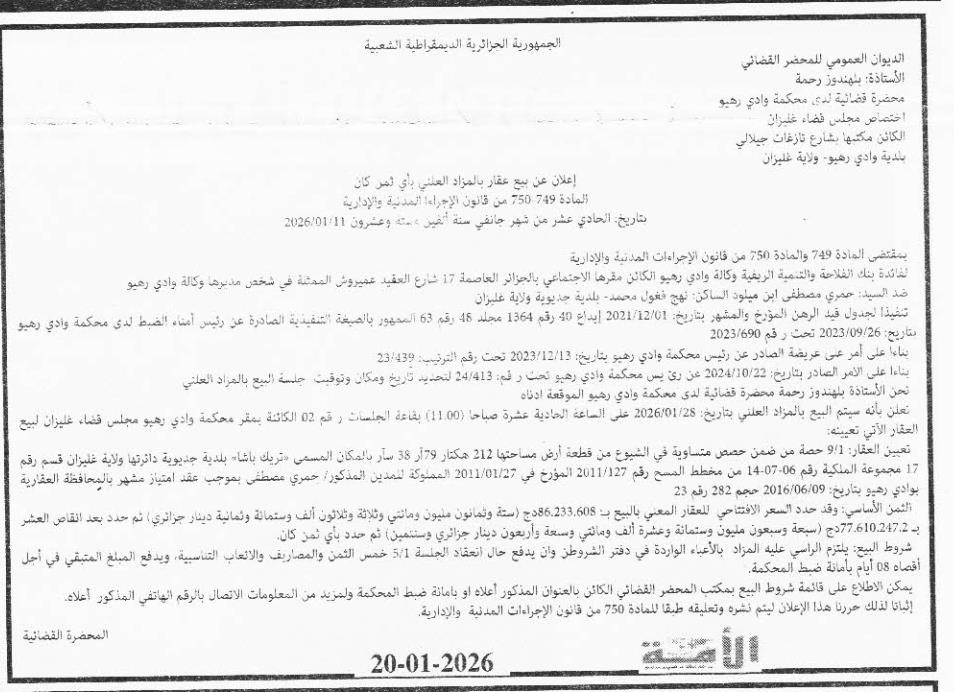 الجمهورية الجزائرية الديمقراطية الشعبية
الديوان العمومي للمحضر القضائي
الأستاذة: بلهندوز رحمة
محضرة قضائية لدى محكمة وادي رهيو
اختصاص مجلس قضاء غليزان
الكائن مكتبها بشارع تازغات جيلالي
بلدية وادي رهيو- ولاية غليزان
إعلان عن بيع عقار بالمزاد العلني بأي ثمن كان
المادة 749-750 من قانون الإجراءا المدنية والإدارية
بتاريخ: الحادي عشر من شهر جانفي سنة ألفين وستة وعشرون 2026/01/11
بمقتضى المادة 749 والمادة 750 من قانون الإجراءات المدنية والإدارية
لفائدة بنك الفلاحة والتنمية الريفية وكالة وادي رهيو الكائن مقرها الاجتماعي بالجزائر العاصمة 17 شارع العقيد عميروش الممثلة في شخص مديرها وكالة وادي رهيو
ضد السيد: حمري مصطفى ابن ميلود الساكن: نهج فغول محمد- بلدية جديوية ولاية غليزان
تنفيذا لجدول قيد الرهن المؤرخ والمشهر بتاريخ: 2021/12/01 إيداع 40 رقم 1364 مجلد 48 رقم 63 الممهور بالصيغة التنفيذية الصادرة عن رئيس أمناء الضبط لدى محكمة وادي رهيو
بتاريخ: 2023/09/26 تحت ر قم 2023/690
بناءا على أمر على عريضة الصادر عن رئيس محكمة وادي رهيو بتاريخ: 2023/12/13 تحت رقم الترتيب: 23/439
بناءا على الامر الصادر بتاريخ: 2024/10/22 عن رئ يس محكمة وادي رهيو تحت ر قم: 24/413 لتحديد تاريخ ومكان وتوقيت جلسة البيع بالمزاد العلني
نحن الأستاذة بلهندوز رحمة محضرة قضائية لدى محكمة وادي رهيو الموقعة ادناه
نعلن بأنه سيتم البيع بالمزاد العلني بتاريخ: 2026/01/28 على الساعة الحادية عشرة صباحا (11.00) بقاعة الجلسات ر قم 02 الكائنة بمقر محكمة وادي رهيو مجلس قضاء غليزان لبيع
العقار الآتي تعيينه:
تعيين العقار: 9/1 حصة من ضمن حصص متساوية في الشيوع من قطعة أرض مساحتها 212 هكتار 79آر 38 سآر بالمكان المسمى »تريك باشا» بلدية جديوية دائرتها ولاية غليزان قسم رقم
17 مجموعة الملكية رقم 06-07-14 من مخطط المسح رقم 2011/127 المؤرخ في 2011/01/27 المملوكة للمدين المذكور/ حمري مصطفى بموجب عقد امتياز مشهر بالمحافظة العقارية
بوادي رهيو بتاريخ: 2016/06/09 حجم 282 رقم 23
الثمن الأساسي: وقد حدد السعر الافتتاحي للعقار المعني بالبيع بـ: 86.233.608دج (ستة وثمانون مليون ومائتي وثلاثة وثلاثون ألف وستمائة وثمانية دينار جزائري) ثم حدد بعد انقاص العشر
بـ 77.610.247.2دج (سبعة وسبعون مليون وستمائة وعشرة ألف ومائتي وسبعة وأربعون دينار جزائري وسنتمين) ثم حدد بأي ثمن كان.
شروط البيع: يلتزم الراسي عليه المزاد بالأعباء الواردة في دفتر الشروطن وان يدفع حال انعقاد الجلسة 5/1 خمس الثمن والمصاريف والاتعاب التناسبية، ويدفع المبلغ المتبقي في أجل
أقصاه 08 أيام بأمانة ضبط المحكمة.
يمكن الاطلاع على قائمة شروط البيع بمكتب المحضر القضائي الكائن بالعنوان المذكور أعلاه او بامانة ضبط المحكمة ولمزيد من المعلومات الاتصال بالرقم الهاتفي المذكور أعلاه.
إثباتا لذلك حررنا هذا الإعلان ليتم نشره وتعليقه طبقا للمادة 750 من قانون الإجراءات المدنية والإدارية.
المحضرة القضائية
الأمة
20-01-2026